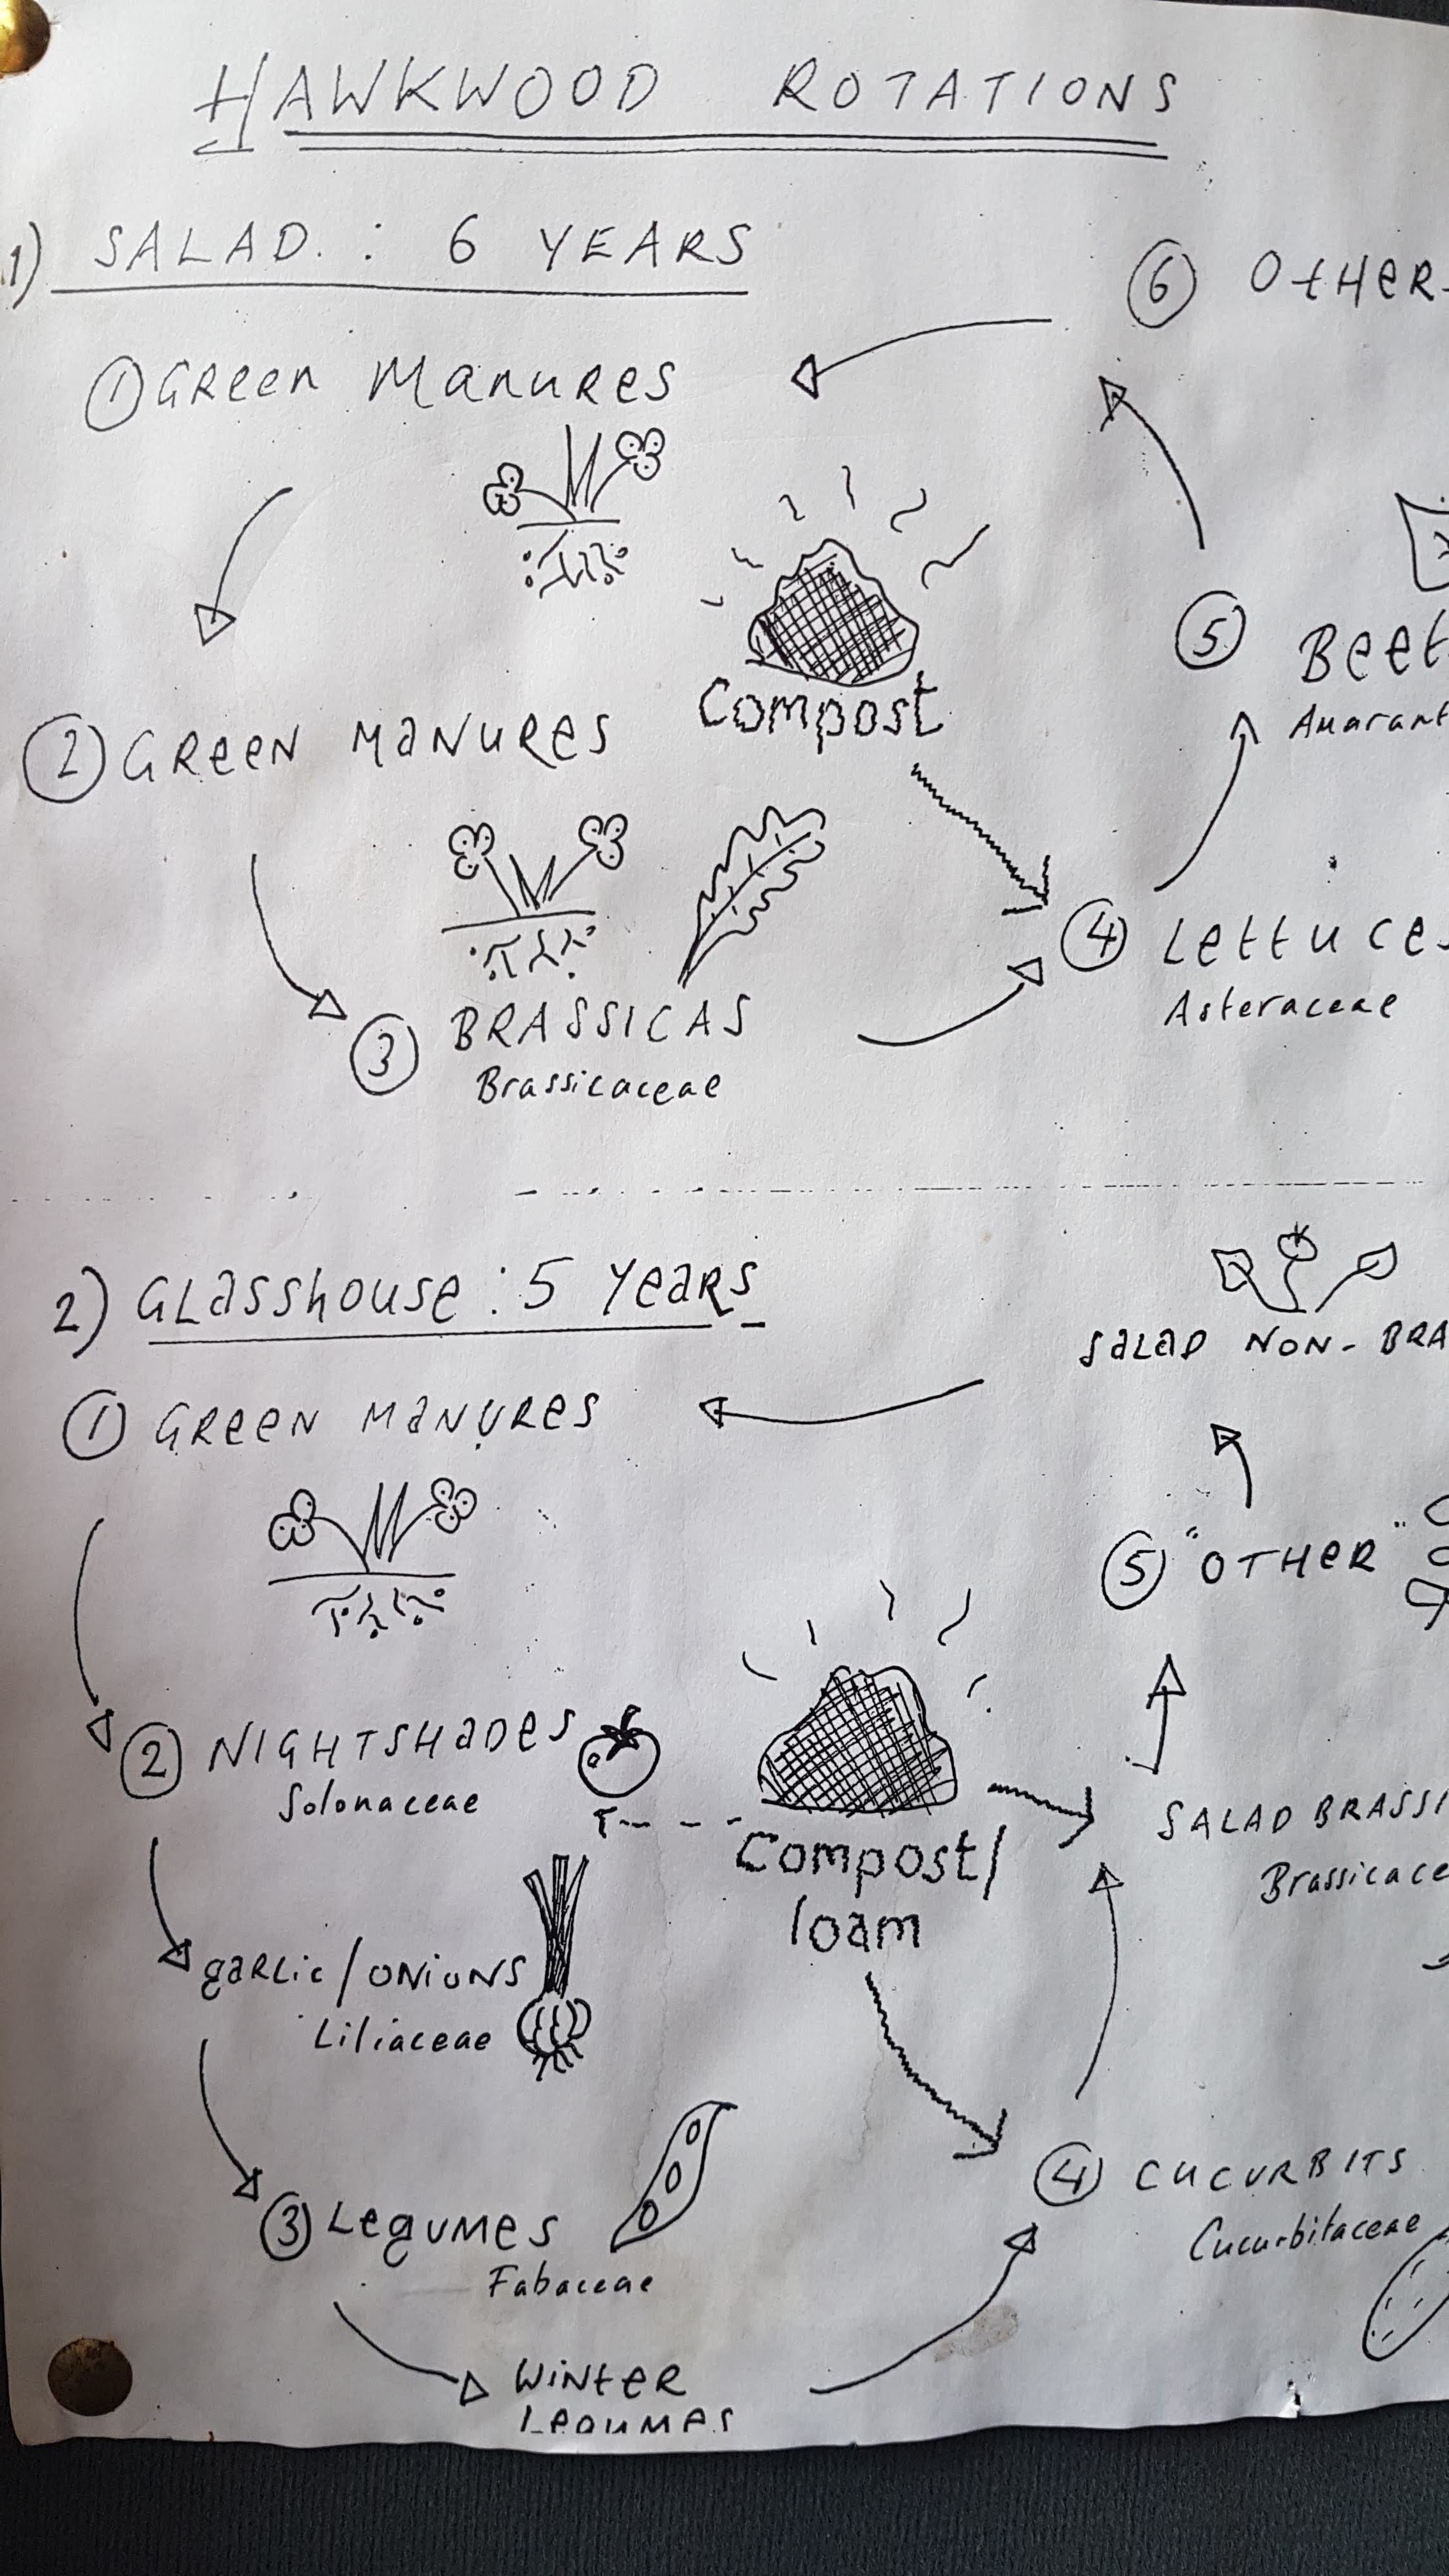 HAWKWOOD ROTATIONS
1) SALAD. : 6 YEARS
① GREEN MANURES
② GREEN MANURES
③ BRASSICAS
Brassicaceae
Compost
④ LETTUCE
Asteraceae
⑤ BEET
Amarant
⑥ OTHER
2) GLASSHOUSE : 5 YEARS
① GREEN MANURES
② NIGHTSHADES
Solonaceae
garlic / ONIONS
Liliaceae
③ LEGUMES
Fabaceae
WINTER
LEGUMES
Compost/
loam
④ CUCURBITS
Cucurbitaceae
SALAD BRASSI
Brassicace
⑤ "OTHER"
SALAD NON- BRA